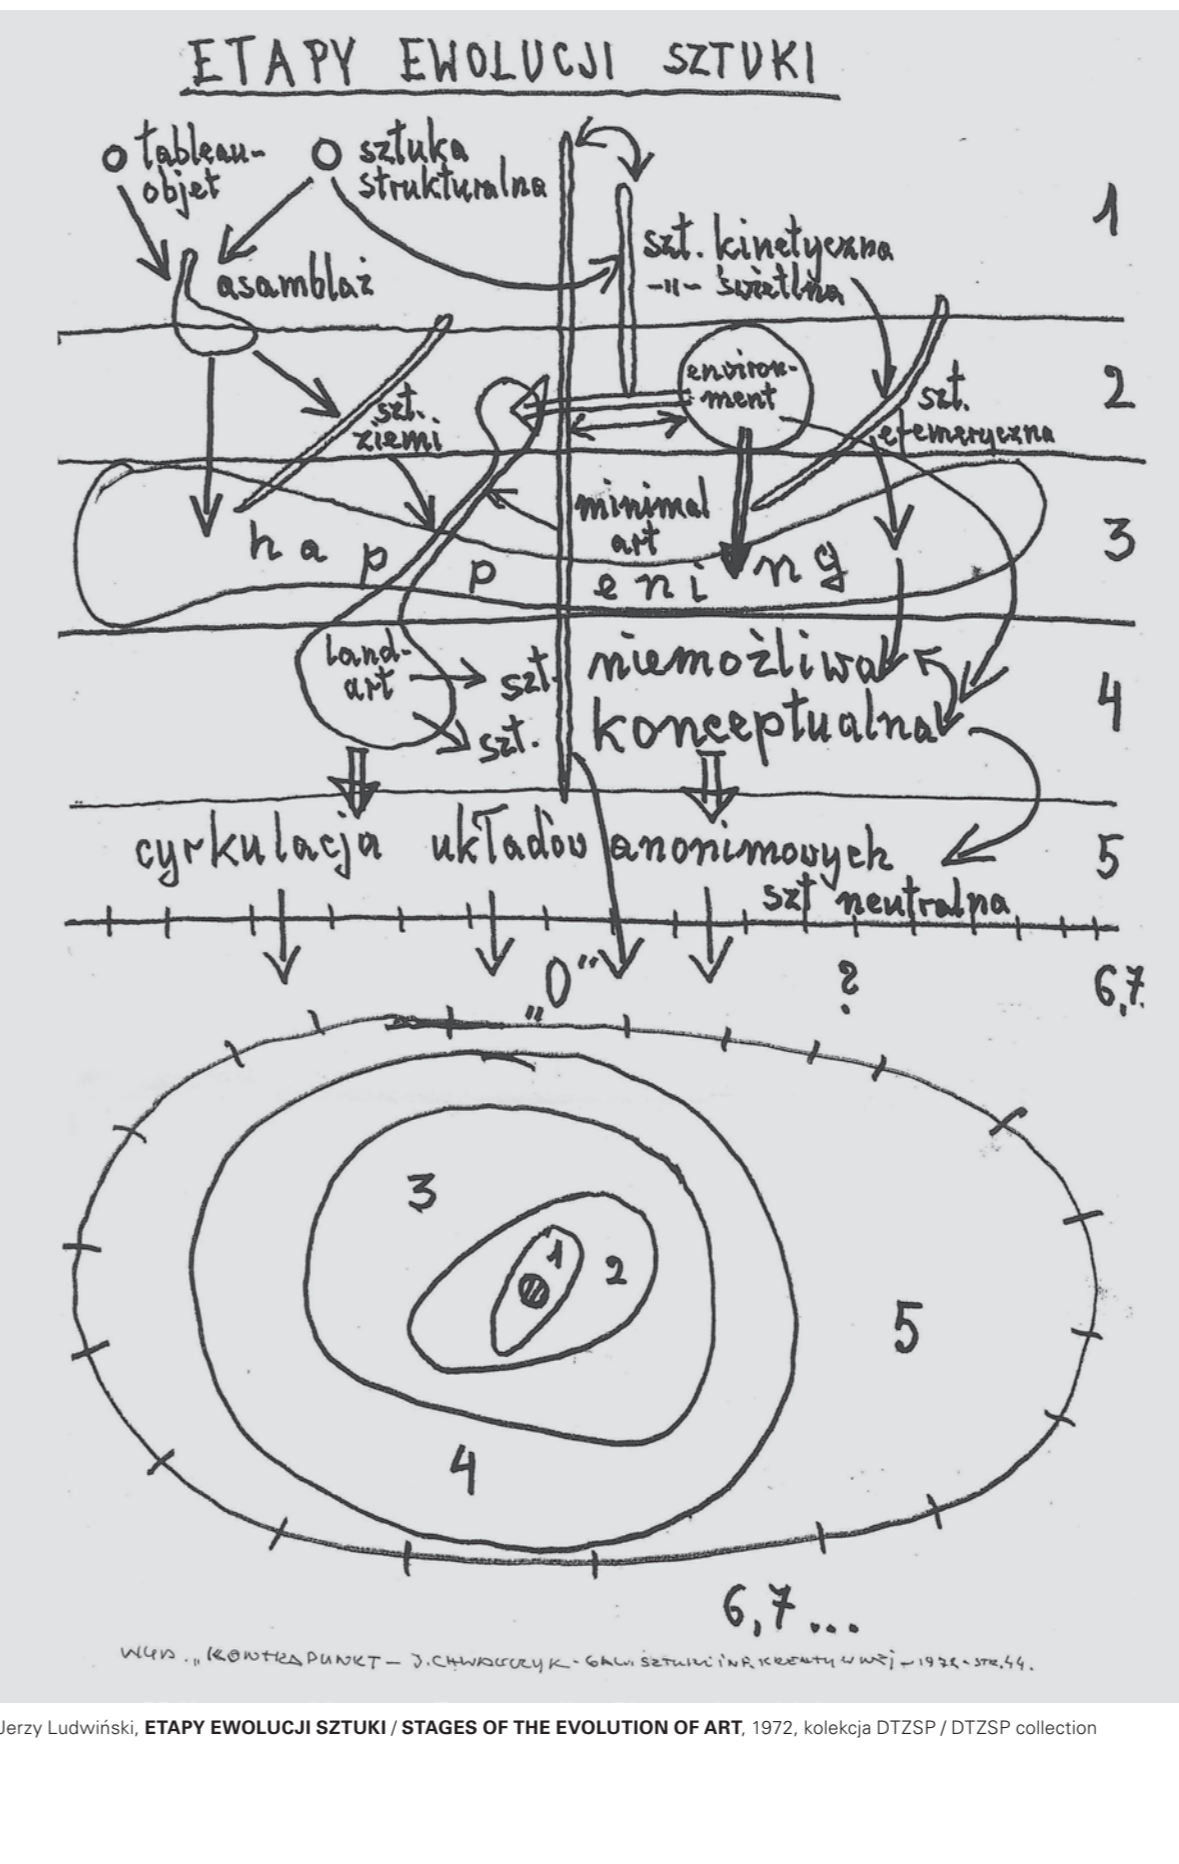 ETAPY EWOLUCJI SZTUKI
tableau-
objet
sztuka
strukturalna
1
asamblaż
szt. kinetyczna
-"- świetlna
2
environ-
ment
szt.
ziemi
szt.
efemeryczna
minimal
art
3
happening
land-
art
szt. niemożliwa
szt. konceptualna
4
cyrkulacja układów anonimowych
5
szt neutralna
„0” ? 6,7
3
1
2
5
4
6,7...
WYD. „KONTRAPUNKT – J. CHWAŁCZYK - STR. 44.
Jerzy Ludwiński, ETAPY EWOLUCJI SZTUKI / STAGES OF THE EVOLUTION OF ART, 1972, kolekcja DTZSP / DTZSP collection